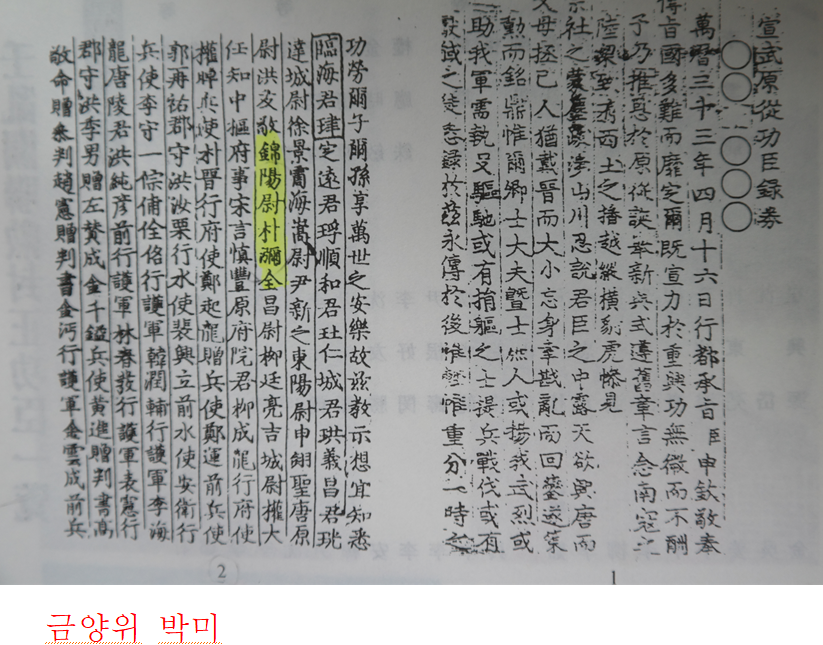 宣武原從功臣錄券
○○○ ○○○○
萬曆三十三年四月十六日行都承旨臣申欽敬奉
傳旨國多難而靡定爾既宣力於重興功無微而不酬
予乃推恩於原從誕擧新典式遵舊章言念南寇之
陸梁至有西土之播越縱橫豺虎慘見
宗社之蒙塵跋涉山川忍說君臣之中露天欲興唐而
父母拯己人猶戴晉而大小忘身幸戡亂而回鑾遂策
動而銘鼎惟爾卿士大夫曁士庶人或揚我武烈或
助我軍需執殳驅馳或有捐軀之士提兵戰伐或有
馘之徒悉錄於玆永傳於後惟輕惟重分一時之
1
功勞爾子爾孫享萬世之安樂故玆敎示想宜知悉
臨海君珒定遠君琈順和君仁城君珙義昌君珖
達城尉徐景霌海嵩尉尹新之東陽尉申翊聖唐原
尉洪友敬錦陽尉朴瀰全昌尉柳廷亮吉城尉權大
任知中樞府事宋言愼豊原府院君柳成龍行府使
權晫水使朴晋行府使鄭起龍贈兵使鄭運前兵使
郭再祐郡守洪汝栗行水使裴興立前水使安衛行
兵使李守一倧俌佺佲行護軍韓潤輔行護軍李海
龍唐陵君洪純彦前行護軍林春發行護軍表憲行
郡守洪季男贈左贊成金千鎰兵使黃進贈判書高
敬命贈參判趙憲贈判書金沔行護軍金雲成前兵
2
금양위 박미